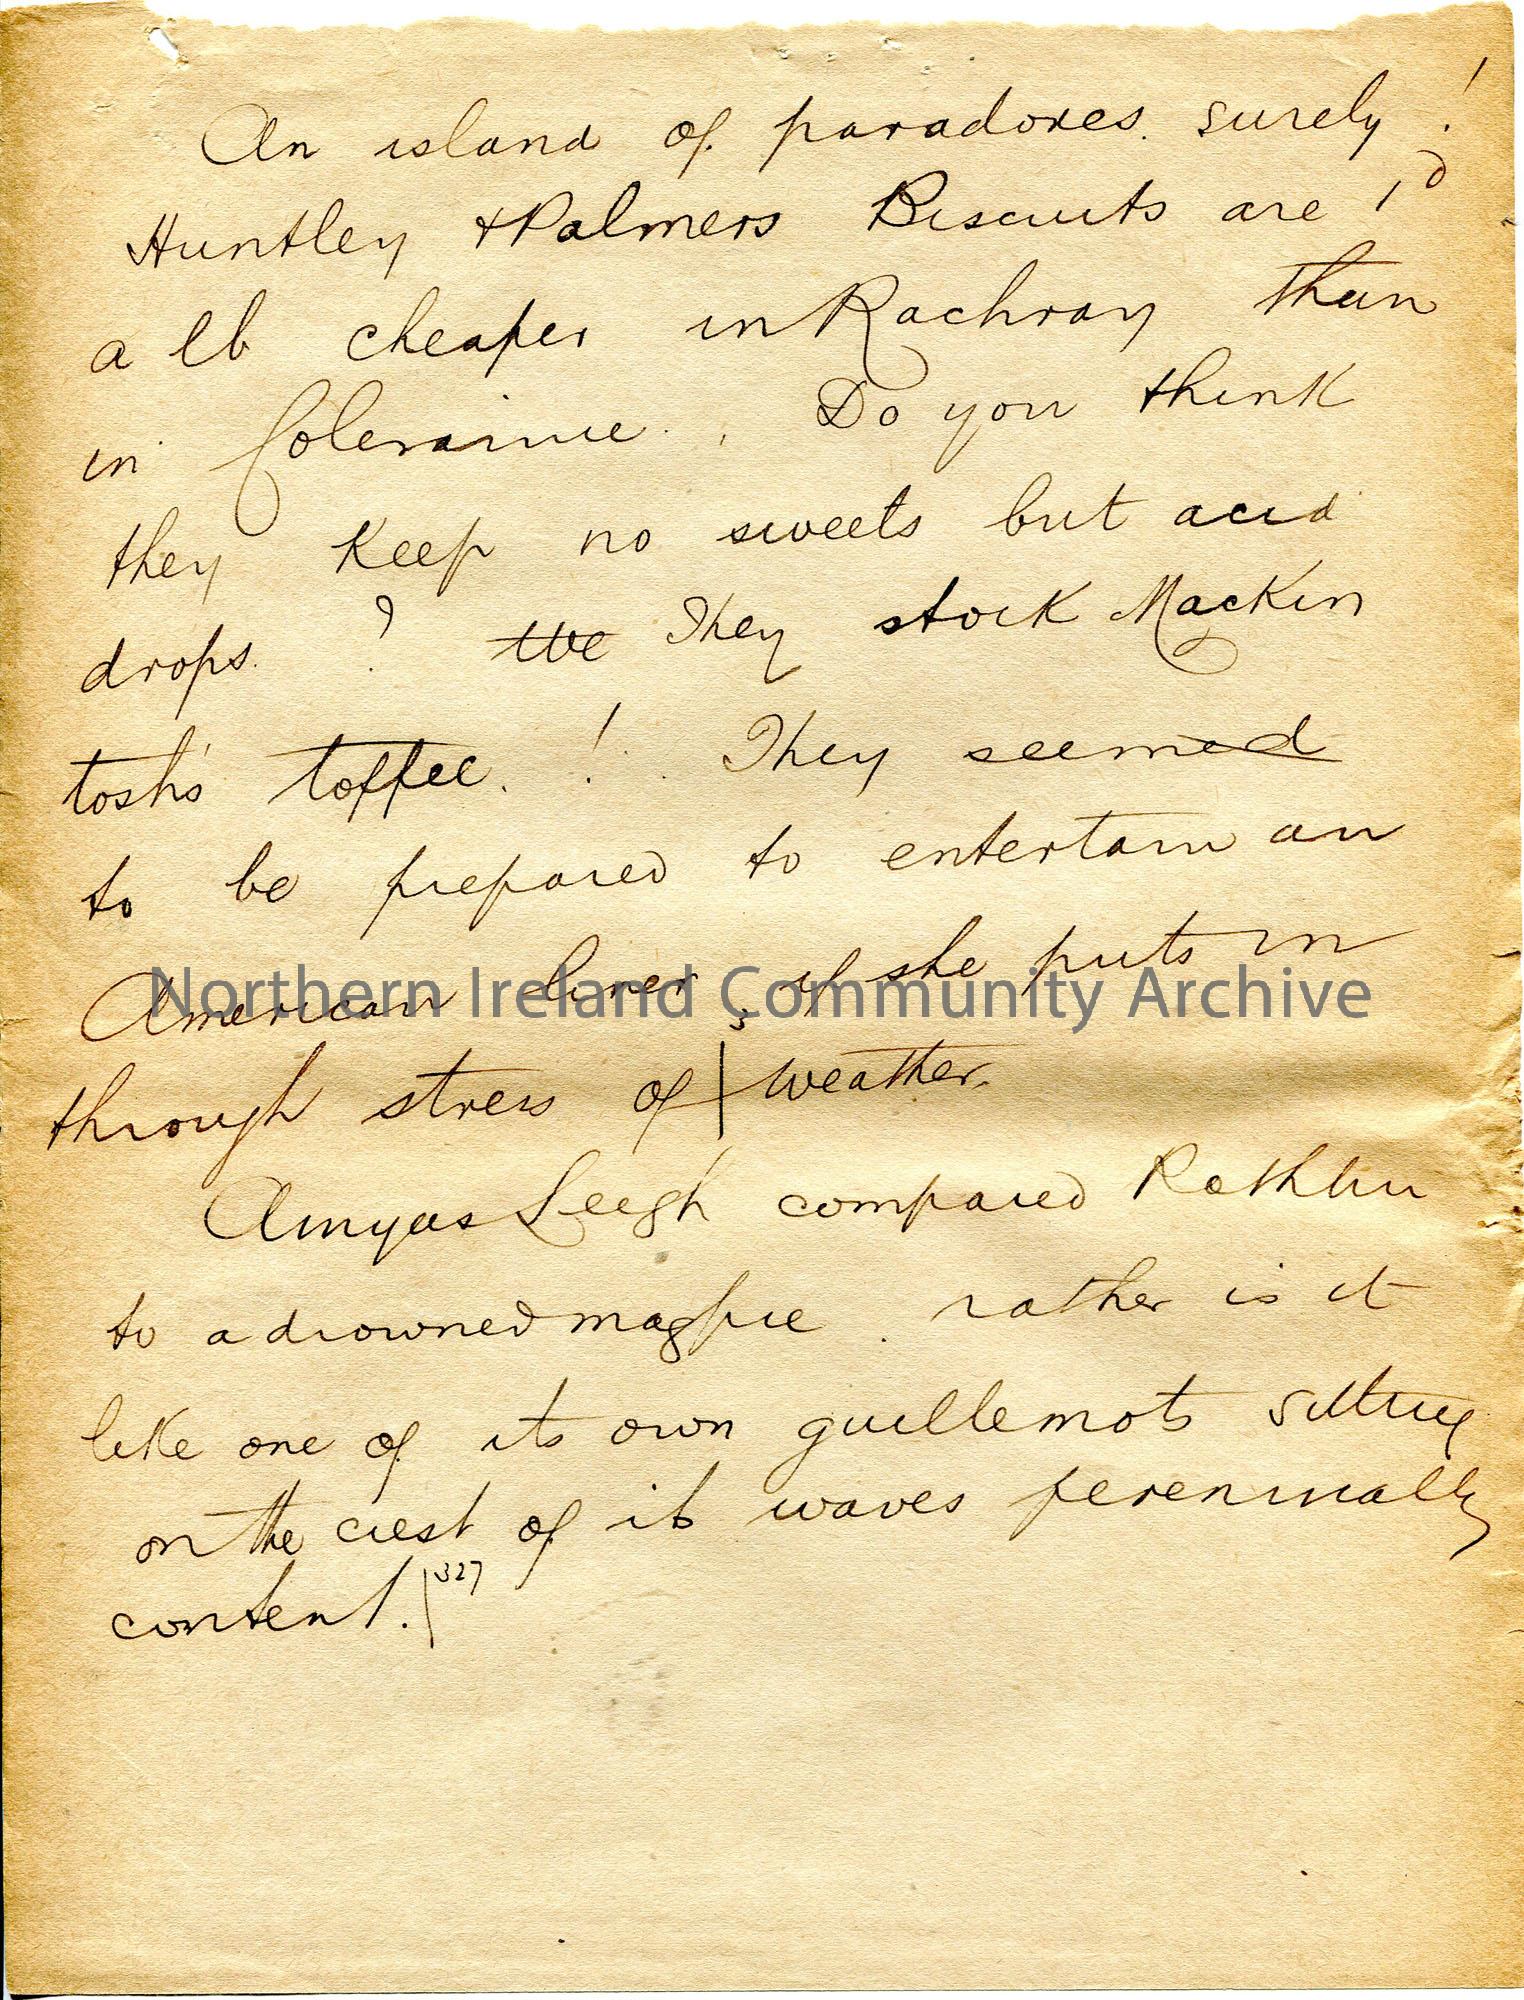 An island of paradoxes surely!
Huntley & Palmers Biscuits are 1d
a lb cheaper in Rachray than
in Coleraine. Do you think
they keep no sweets but acid
drops? We They stock Mackin
tosh's toffee! They seemed
to be prepared to entertain an
American liner, if she puts in
Northern Ireland Community Archive
through stress of | weather.
Amyas Leegh compared Rathlin
to a drowned magpie. rather is it
like one of its own guillemots sitting
on the crest of its waves perennially
content. | 327